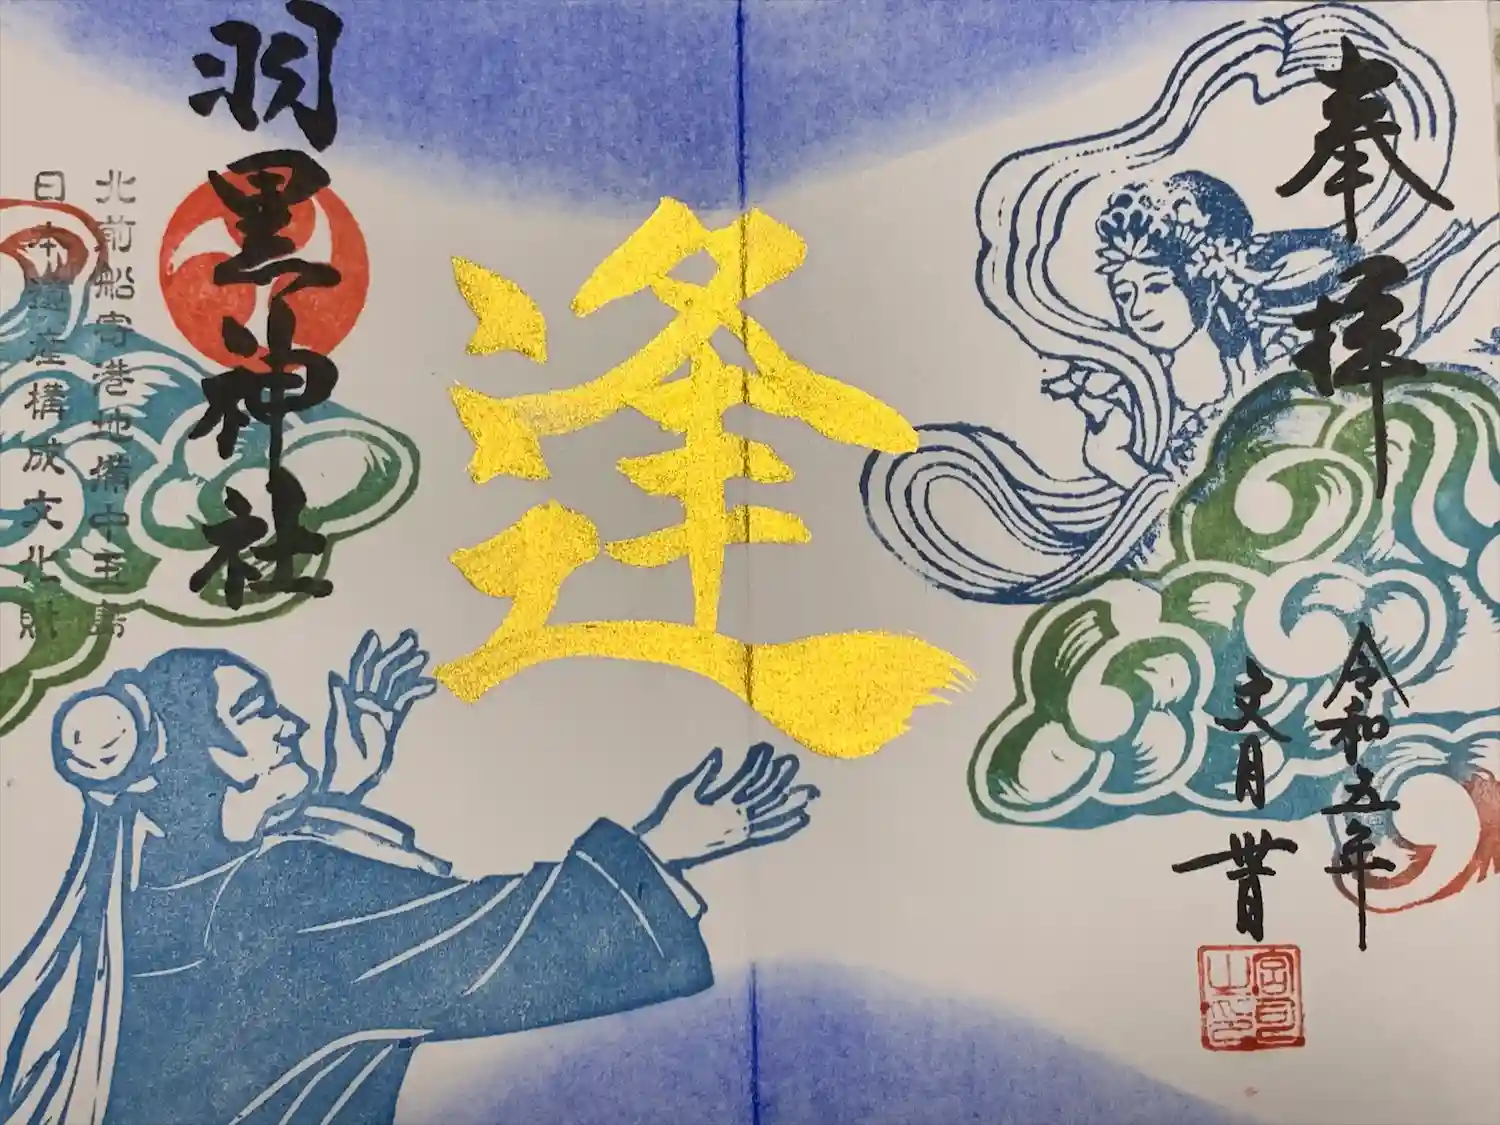 奉拝
令和五年
文月
逢
羽黒神社
北前船寄港地備中玉島
日本遺産構成文化財